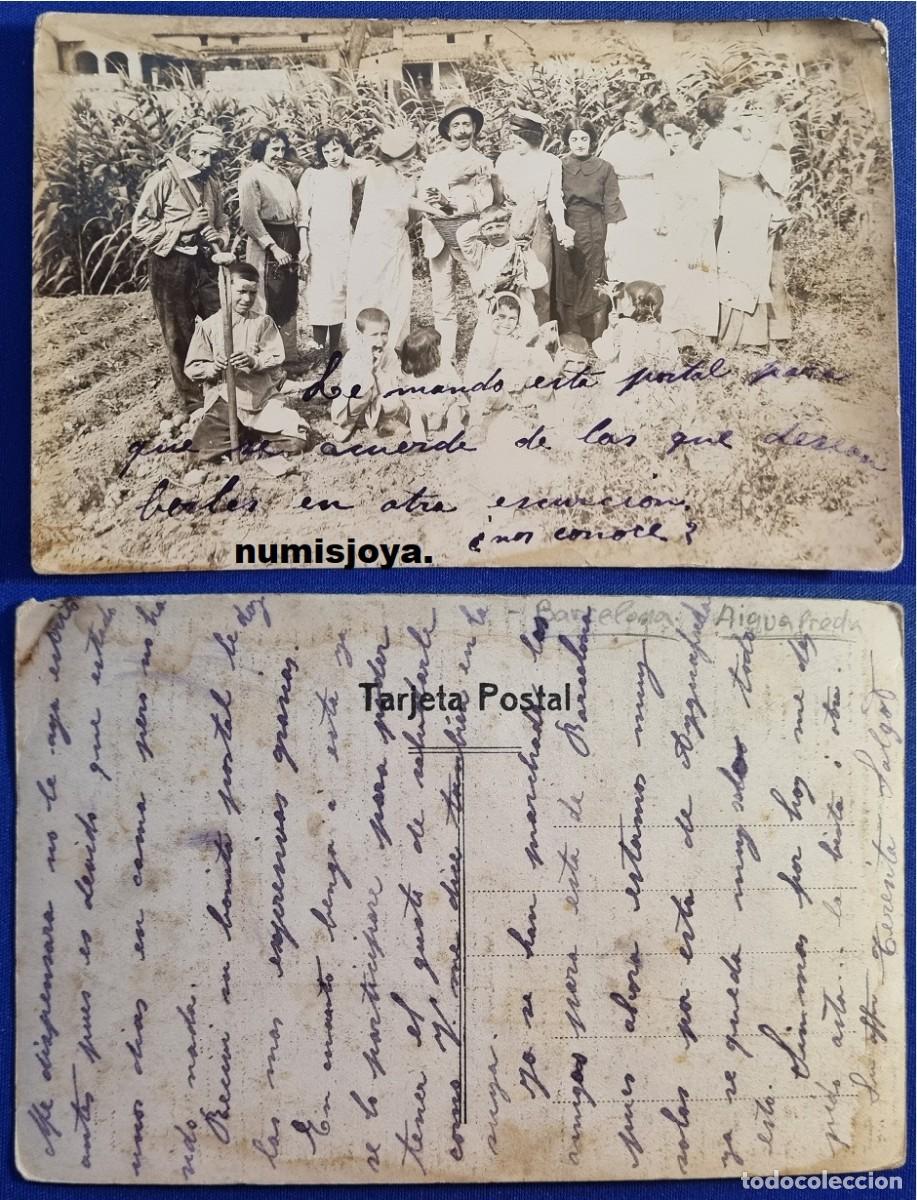 Le mando esta postal para
que se acuerde de las que desean
berles en otra escursión.
¿nos conoce?
numisjoya.
- Barcelona - Aiguafreda
Tarjeta Postal
Me dispensara no le aya escrito
antes pues es devido que estado
unos dias en cama pero no ha
sido nada.
Recivi su bonita postal le doy
las mas espresivas gracias.
En cuanto benga a esta ya
se lo participare para poder
tener el gusto de saludarle
como V. me dice tambien en la
suya.
Ya se han marchado las
amigas para esta de Barcelona
pues ahora estamos muy
solas por esta de Ayguafreda
ya se queda muy solo todo
esto. Sinmas por hoy me des
pido asta... la bista i otra.
Su affma Teresita Salgot
todocoleccion